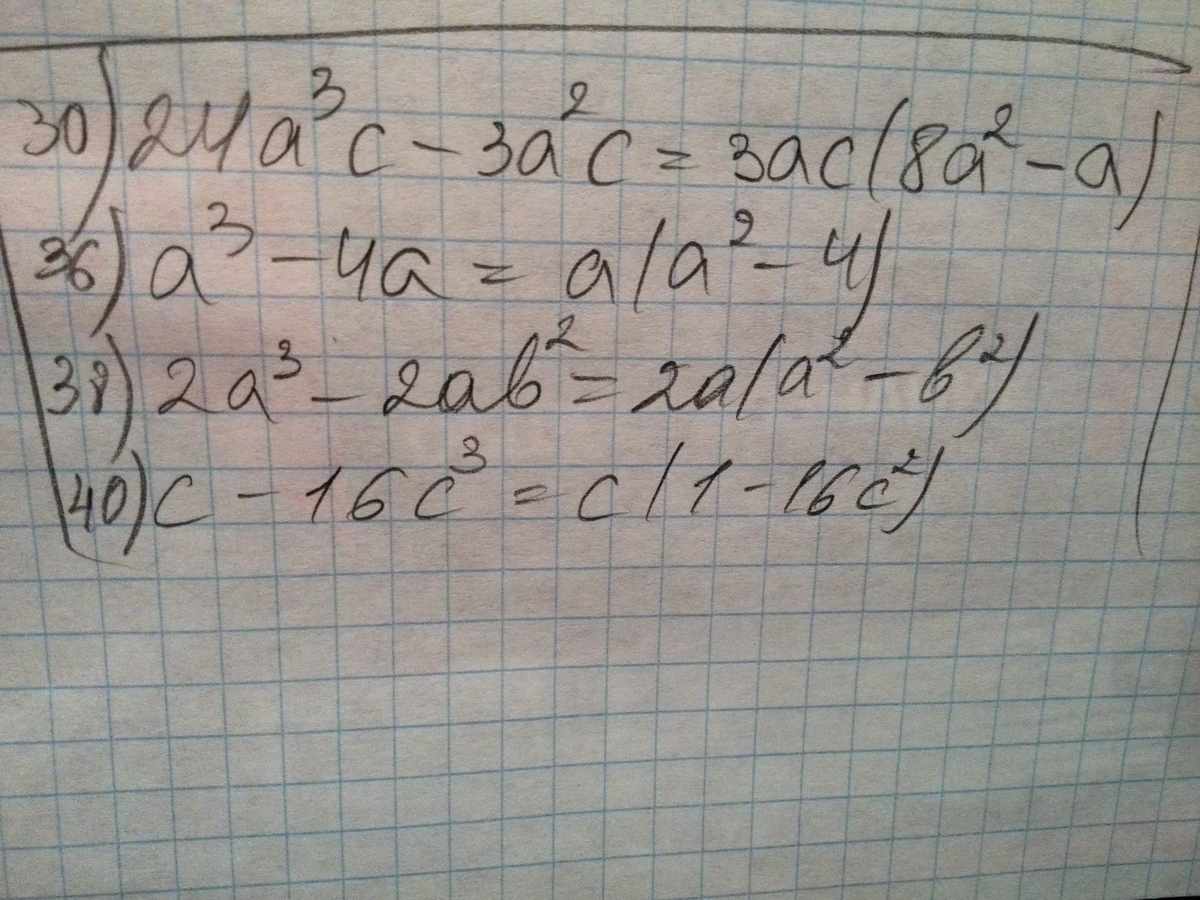 30) 24a³c - 3a²c = 3ac(8a² - a)
36) a³ - 4a = a(a² - 4)
38) 2a³ - 2ab² = 2a(a² - b²)
40) c - 16c³ = c(1 - 16c²)